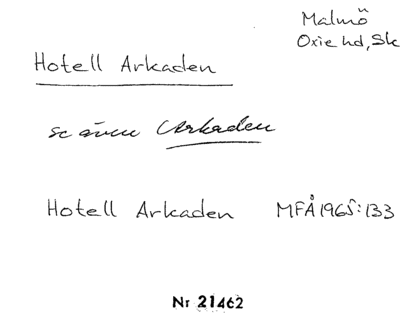 Malmö
Oxie hd, Sk
Hotell Arkaden
se även Arkaden
Hotell Arkaden MFÅ 1965:133
Nr 21462